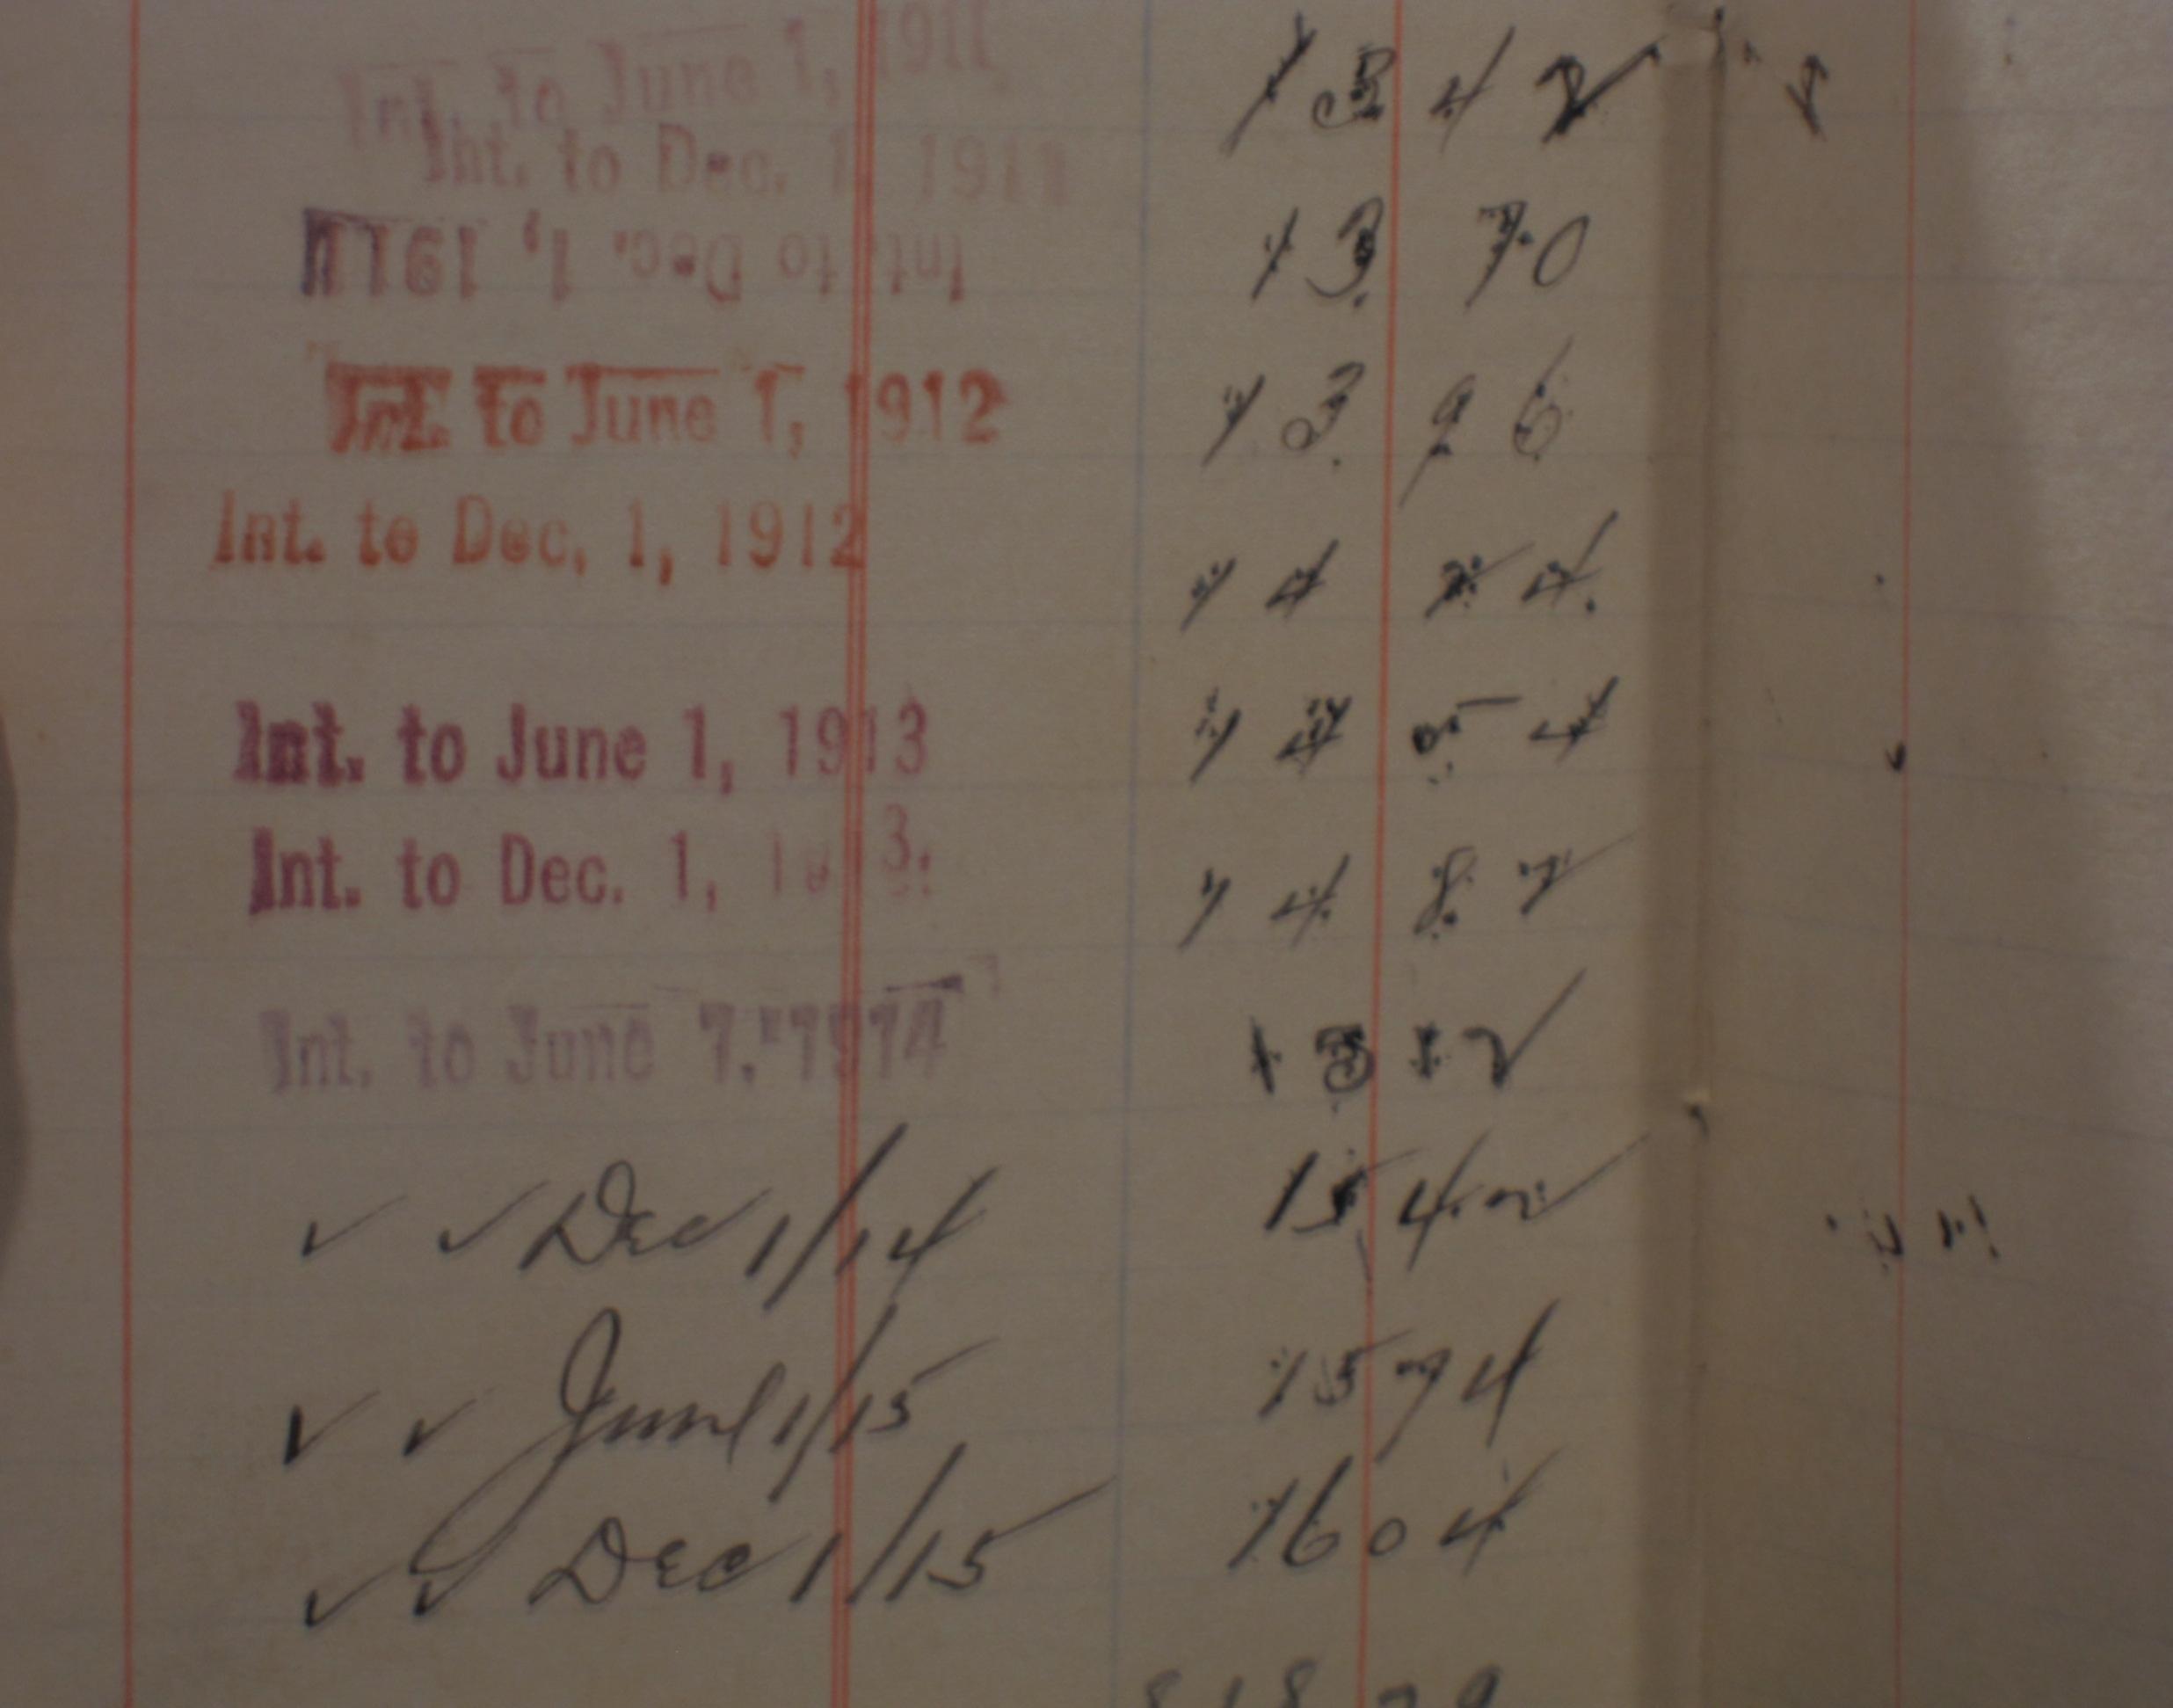 Int. to June 1, 1911 13 42
Int. to Dec. 1, 1911
Int. to Dec. 1, 1911 13 70
Int. to June 1, 1912 13 96
Int. to Dec. 1, 1912 14 24
Int. to June 1, 1913 14 54
Int. to Dec. 1, 1913 14 82
Int. to June 1, 1914 15 12
✓ ✓ Dec 1/14 15 42
✓ ✓ June 1/15 15 74
✓ ✓ Dec 1/15 16 04
818 79